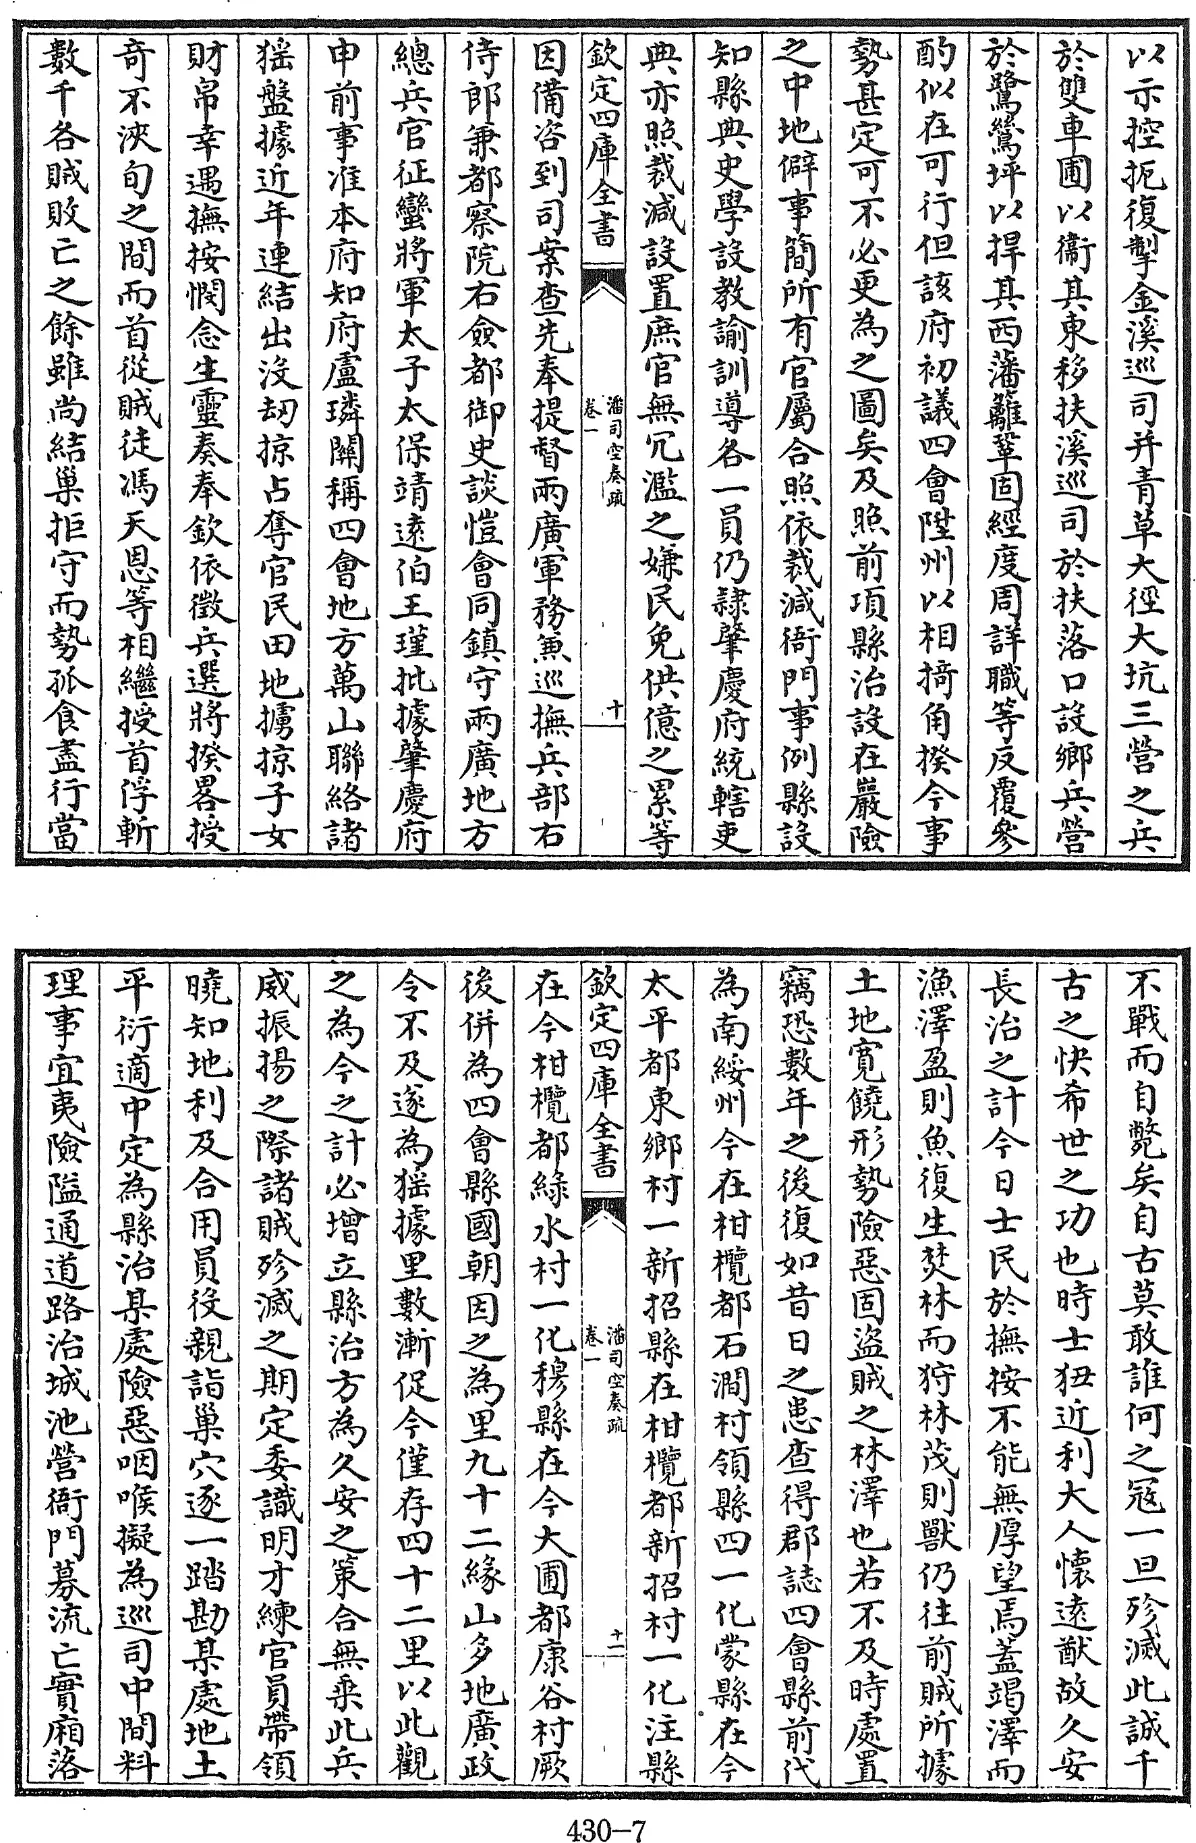 以示控扼復掣金溪巡司并青草大徑大坑三營之兵
於雙車圃以衞其東移扶溪巡司於扶落口設鄉兵營
於鷺鷥坪以捍其西藩籬鞏固經度周詳職等反覆參
酌似在可行但該府初議四會陞州以相掎角揆今事
勢甚定可不必更為之圖矣及照前項縣治設在嚴險
之中地僻事簡所有官屬合照依裁減衙門事例縣設
知縣典史學設教諭訓導各一員仍隸肇慶府統轄吏
典亦照裁減設置庶官無冗濫之嫌民免供億之累等
欽定四庫全書
潘司空奏疏
卷一
十
因備咨到司案查先奉提督兩廣軍務兼巡撫兵部右
侍郎兼都察院右僉都御史談愷會同鎮守兩廣地方
總兵官征蠻將軍太子太保靖遠伯王瑾批據肇慶府
申前事准本府知府盧璘關稱四會地方萬山聯絡諸
猺盤據近年連結出沒刼掠占奪官民田地擄掠子女
財帛幸遇撫按憫念生靈奏奉欽依徵兵選將揆畧授
奇不浹旬之間而首從賊徒馮天恩等相繼授首俘斬
數千各賊敗亡之餘雖尚結巢拒守而勢孤食盡行當
不戰而自斃矣自古莫敢誰何之宼一旦殄滅此誠千
古之快希世之功也時士狃近利大人懐逺猷故久安
長治之計今日士民於撫按不能無厚望焉蓋竭澤而
漁澤盈則魚復生焚林而狩林茂則獸仍往前賊所據
土地寛饒形勢險惡固盜賊之林澤也若不及時處置
竊恐數年之後復如昔日之患查得郡誌四會縣前代
為南綏州今在柑欖都石澗村領縣四一化蒙縣在今
太平都東鄉村一新招縣在柑欖都新招村一化注縣
欽定四庫全書
潘司空奏疏
卷一
十一
在今柑欖都綠水村一化穆縣在今大圃都康谷村厥
後併為四會縣國朝因之為里九十二緣山多地廣政
令不及遂為猺據里數漸促今僅存四十二里以此觀
之為今之計必增立縣治方為久安之策合無乘此兵
威振揚之際諸賊殄滅之期定委識明才練官員帶領
曉知地利及合用員役親詣巢穴逐一踏勘某處地土
平衍適中定為縣治某處險惡咽喉擬為巡司中間料
理事宜夷險隘通道路治城池營衙門募流亡實廂落
430-7